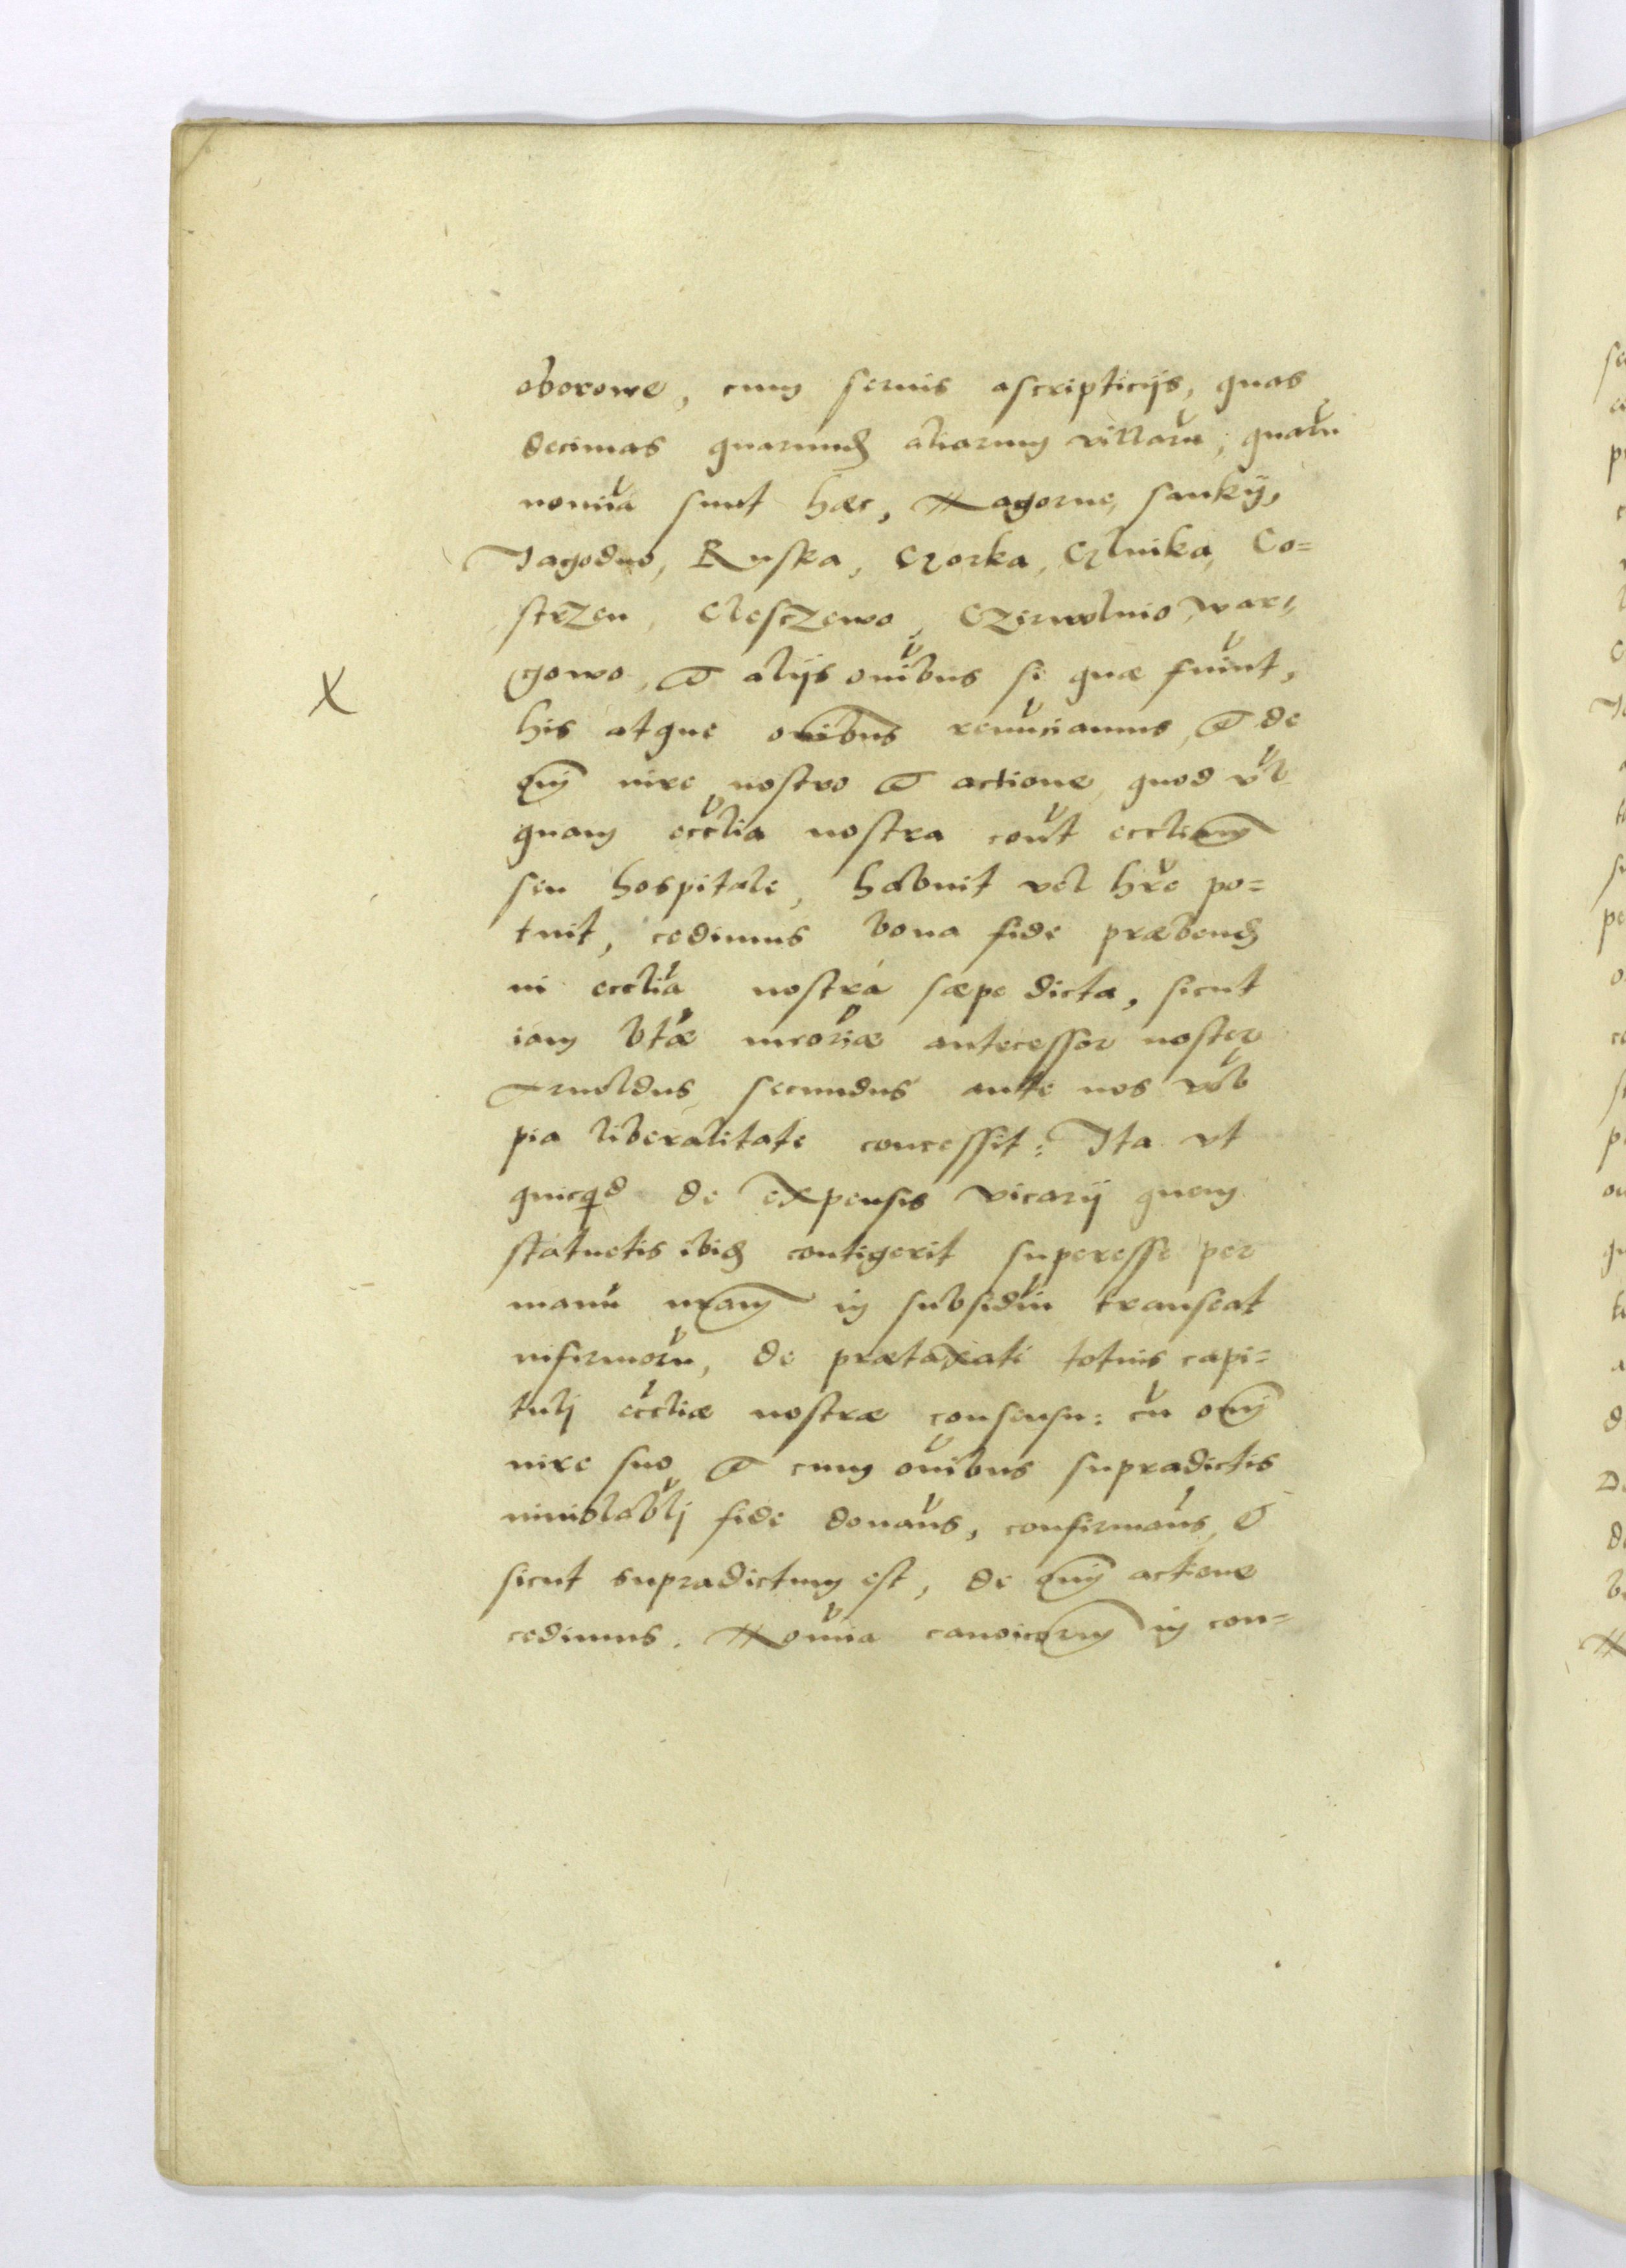 oborowe, cum seruis ascripticijs, quas
decimas quarund aliarum villarū, quarū
nomīa sunt hæc, Nagorne, sankÿ,
Jagodno, Ruska, Czorka, Czlnika, Co=
strzen, Clesczewo, Czirwolnio, war,
gowo, & alijs oīnibus si quæ fuīnt,
his atque omībus renūciamus, & de
omj iure nostro & actione, quod vn̄
quam eccl̄ia nostra cont̄ eccliam
seu hospitale, habuit vel hr̄e po=
tuit, cedimus bona fide præbend
in eccl̄ia nostra sæpe dicta, sicut
iam bt̄æ meōriæ antecessor noster
Arnoldus secundus ante nos vob̄
pia liberalitate concessit: Ita vt
quicqd de expensis vicarij quem
statuetis ibid contigerit superesse per
manū nram in subsidiū transeat
infirmorū, de prætaxati totius capi=
tulj eccl̄iæ nostræ consensu: cū omj
iure suo & cum omībus supradictis
inuiolab̄lj fide donam̄s, confirmam̄s, &
sicut supradictum est, de omj actione
cedimus. Nomīa canoicorum in con=
X